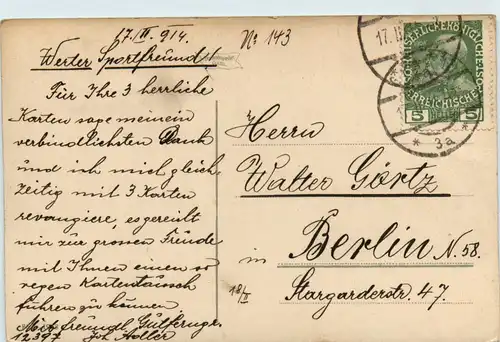 17./II. 914.
No 143
Werter Sportfreund!
Für Ihre 3 herrliche
Karten sage meinem
verbindlichsten Dank
und ich mich gleich
zeitig mit 3 Karten
revangiere, es gereicht
mir zur grossen Freude
mit Ihnen einen so
regen Kartentausch
führen zu können
Mit freundl.
12397 Joh Adler
Herrn
Walter Görtz
in Berlin N. 58.
18/II
Stargarderstr. 47.
17. II
5 5
* 3a *